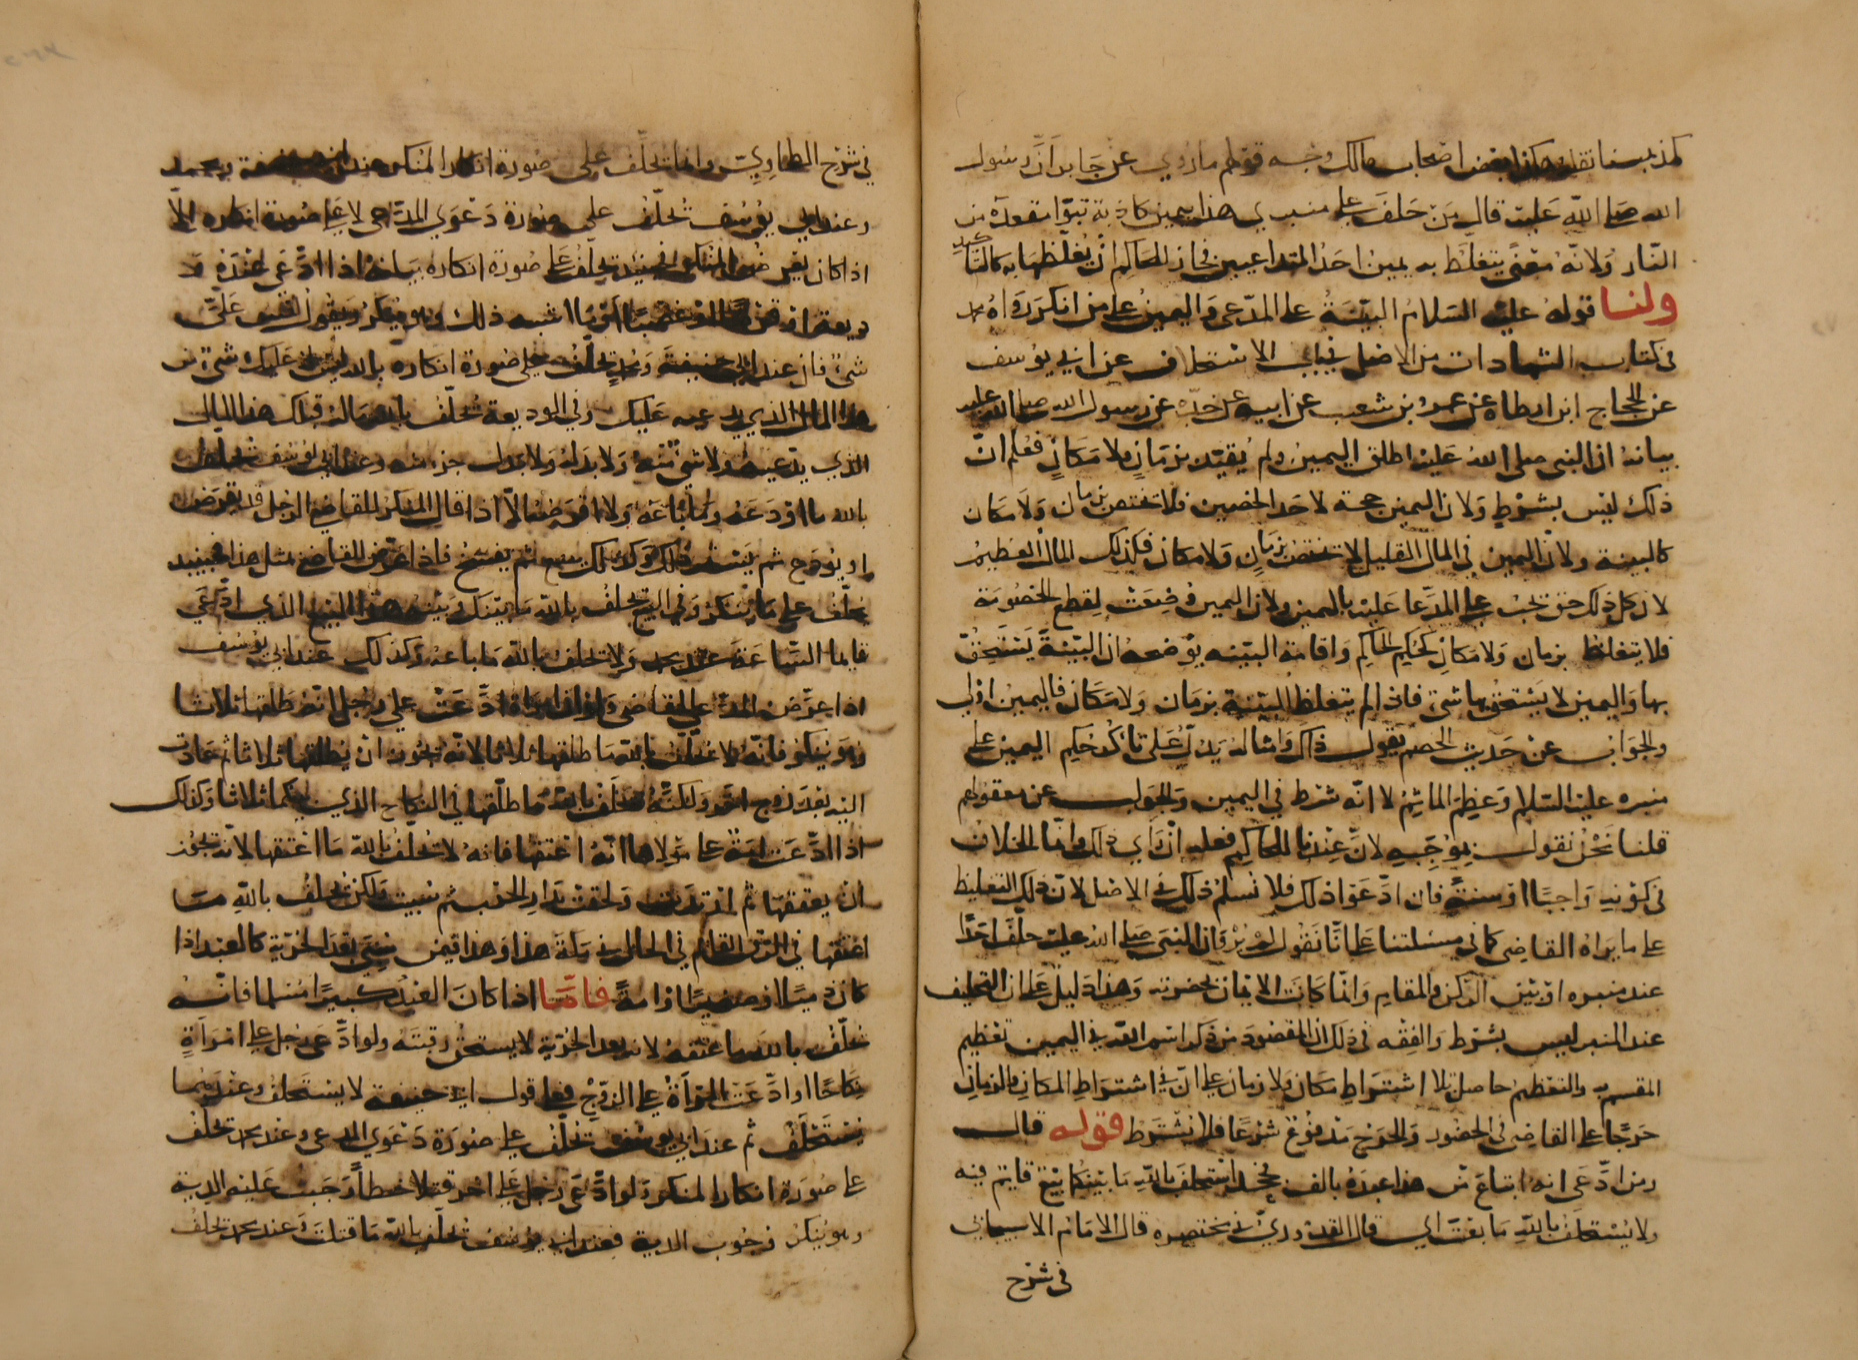 كمذهبنا نقله هكذا بعض اصحاب مالك وجه قولهم ما روي عن جابر ان رسول
الله صلى الله عليه قال من حلف على منبري هذا بيمين كاذبة تبوّا مقعده من
النّار ولانّه معنًى يتغلّظ به يمين احد المتداعيين فجاز للحاكم ان يغلّظها به كالتاكيد
ولنا قوله عليه السلام البيّنة على المدّعى واليمين على من انكر رواه محمد
فى كتاب الشهادات من الاصل في باب الاستحلاف عن ابي يوسف
عن الحجاج ابن ارطاه عن عمرو بن شعيب عن ابيه عن جدّه عن رسول الله صلى الله عليه
بيانه ان النبى صلى الله عليه اطلق اليمين ولم يقيّد بزمانٍ ولا مكانٍ فعلم انّ
ذلك ليس بشرطٍ ولان اليمين حجة لاحد الخصمين فلا تختص بزمان ولا مكان
كالبينة ولان اليمين في المال القليل لا تختصّ بزمانٍ ولا مكان فكذلك المال العظيم
لان كل ذلك حق تجب على المدّعا عليه باليمين ولان اليمين وضعت لقطع الخصومة
فلا يتغلظ بزمان ولا مكان كتحكيم الحاكم واقامة البيّنه يوضحه ان البيّنة يستحقّ
بها واليمين لا يستحق بها شىء فاذا لم يتغلظ البيّنة بزمان ولا مكان فاليمين اولى
والجواب عن حديث الخصم نقول ذاك وامثاله يدلّ على تاكد حكم اليمين على
منبره عليه السلام وعظم الماثم لا انّه شرط في اليمين والجواب عن معقولهم
قلنا نحن نقول بموجبه لانّ عندنا للحاكم فعله ان راى ذلك وانّما الخلاف
فى كونه واجبًا او سنة فان ادّعوا ذلك فلا نسلم ذلك فى الاصل لانّ ذلك التغليظ
على ما يراه القاضى كما في مسئلتنا على انّا نقول لم يُرْوَ ان النبى صلى الله عليه حلّف احدًا
عند منبره او بين الركن والمقام وانّما كانت الايمان بحضرته وهذا دليل على ان التحليف
عند المنبر ليس بشرط والفقه فى ذلك ان المقصود من ذكر اسم الله في اليمين تعظيم
المقسم به والتعظيم حاصل بلا اشتراط مكان ولا زمان على انّ في اشتراط المكان والزمان
حرجًا على القاضى فى الحضور والحرج مدفوع شرعًا فلا يشترط قوله قال
ومن ادّعى انه ابتاع من هذا عبده بالف فجحد استحلف بالله ما بينكما بيع قايم فيه
ولا يستحلف بالله ما بعت اي قال القدوري في مختصره قال الامام الاسبيجابي
فى شرح
في شرح الطحاوي وانما تحلّف على صورة انكار المنكر عند ابى حنيفة ومحمد
وعند ابي يوسف تحلّف على صورة دعوى المدّعى لا على صورة انكاره الّا
اذا كان يعرض المنكر فحينئذ يحلف على صورة انكاره بيانه اذا ادّعى عنده
وديعة او قرضًا او غصبًا او ما اشبه ذلك وهو ينكر ويقول ليس علىّ
شىء فان عند ابي حنيفة ومحمد تحلّف على صورة انكاره بالله ليس له عليك شىء من
هذا المال الذي يدعيه عليك وفى الوديعة تحلّف بالله ماله قبلك هذا المال
الذي يدّعيه ولا شىء منه ولا بدله ولا بدل جزء منه وعند ابي يوسف تحلف
بالله ما اودعه وما باعه ولا اقرضه الّا اذا قال المنكر للقاضى الرجل قد يقرض
او يودع ثم يستردّ ذلك وكذلك يبيع ثم يفسخ فاذا عرّض للقاضى مثل هذا فحينئذ
تحلّف على ما ينكر وفي البيع تحلف بالله ما بينك وبينه هذا البيع الذي ادّعى
قايما الساعة عند محمد ولا تحلف بالله ما باعه وكذلك عند ابي يوسف
اذا عرّض المدّعى للقاضى ولو ان امراة ادّعت على رجل انّه طلقها ثلاثا
وهو ينكر فانّه لا تحلّف بالله ما طلقها ثلاثا لانّه يجوز ان يطلقها ثلاثا ثم عادت
اليه بعد زوج اخر ولكنّه تحلف بالله ما طلّقها في النكاح الذي بينكما ثلاثا وكذلك
اذا ادّعت امة على مولاها انّه اعتقها فانه لا تحلّف بالله ما اعتقها لانّه يجوز
ان يعتقها ثم ارتدّت ولحقت بدار الحرب ثم سُبيت ولكن تحلف بالله ما
اعتقها في الرق القايم في الحال في ملكه هذا وهذا فيمن سبي بعد الحرّية كالعبد اذا
كان ذميًا او صغيرًا او امةً فامّا اذا كان العبد كبيرًا مسلما فانّه
تحلّف بالله ما اعتقه لانه بعد الحرّية لا يستحق رقبته ولو ادّعى رجل على امراةٍ
نكاحًا او ادّعت المراة على الزوج فعلى قول ابى حنيفة لا يستحلف وعندهما
يستحلف ثم عند ابي يوسف تحلّف على صورة دعوى المدعى وعند محمد تحلّف
على صورة انكار المنكر ولو ادّعى رجل على اخر قتلا خطأً وجبت عليه الدية
وهو ينكر وجوب الدية فعند ابى يوسف تحلّف بالله ما قتلت وعند محمد تحلف